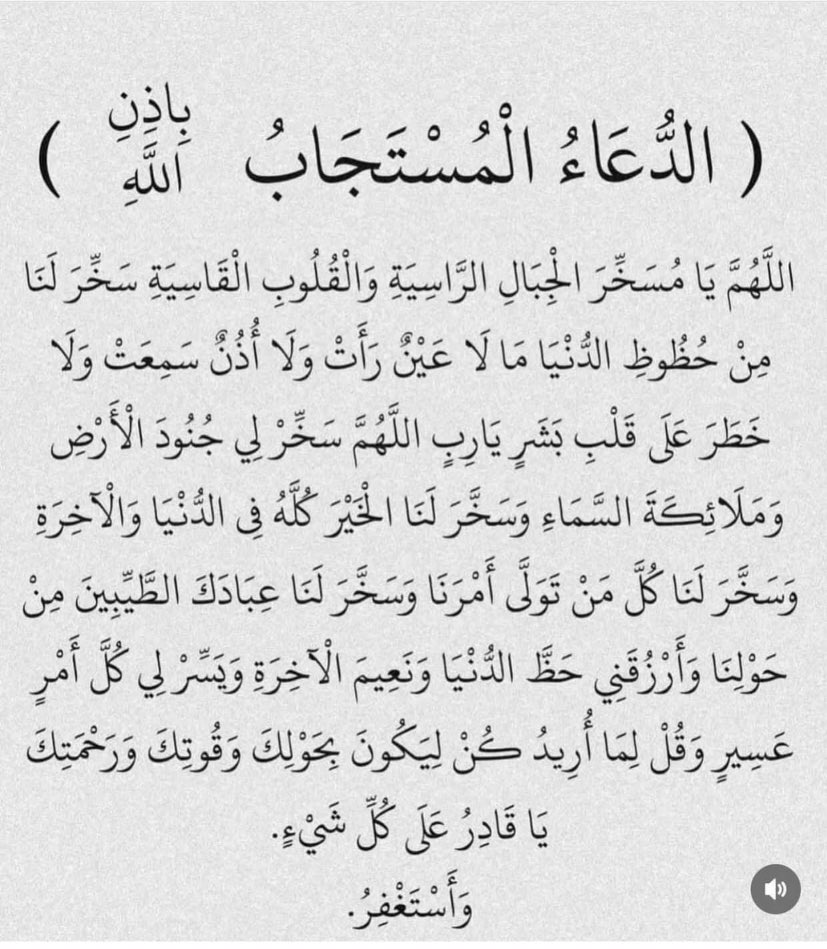 ( الدُّعَاءُ الْمُسْتَجَابُ بِاذِنِ اللَّهِ )
اللَّهُمَّ يَا مُسَخِّرَ الْجِبَالِ الرَّاسِيَةِ وَالْقُلُوبِ الْقَاسِيَةِ سَخِّرَ لَنَا
مِنْ حُظُوظِ الدُّنْيَا مَا لَا عَيْنٌ رَأَتْ وَلَا أُذُنٌ سَمِعَتْ وَلَا
خَطَرَ عَلَى قَلْبِ بَشَرٍ يَارِبٍ اللَّهُمَّ سَخِّرْ لِي جُنُودَ الْأَرْضِ
وَمَلَائِكَةَ السَّمَاءِ وَسَخَّرَ لَنَا الْخَيْرَ كُلَّهُ فِي الدُّنْيَا وَالْآخِرَةِ
وَسَخَّرَ لَنَا كُلَّ مَنْ تَوَلَّى أَمْرَنَا وَسَخَّرَ لَنَا عِبَادَكَ الطَّيِّبِينَ مِنْ
حَوْلِنَا وَأَرْزُقَنِي حَظَّ الدُّنْيَا وَنَعِيمَ الْآخِرَةِ وَيَسِّرْ لِي كُلَّ أَمْرٍ
عَسِيرٍ وَقُلْ لِمَا أُرِيدُ كُنْ لِيَكُونَ بِحَوْلِكَ وَقُوتِكَ وَرَحْمَتِكَ
يَا قَادِرُ عَلَى كُلِّ شَيْءٍ.
وَأَسْتَغْفِرُ.